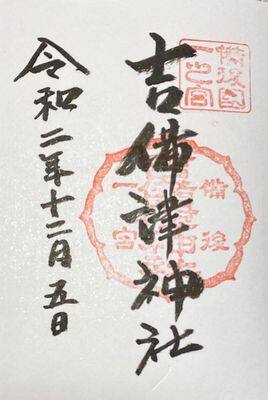 備後国
一之宮
吉備津神社
備後
一宮
令和二年十二月五日